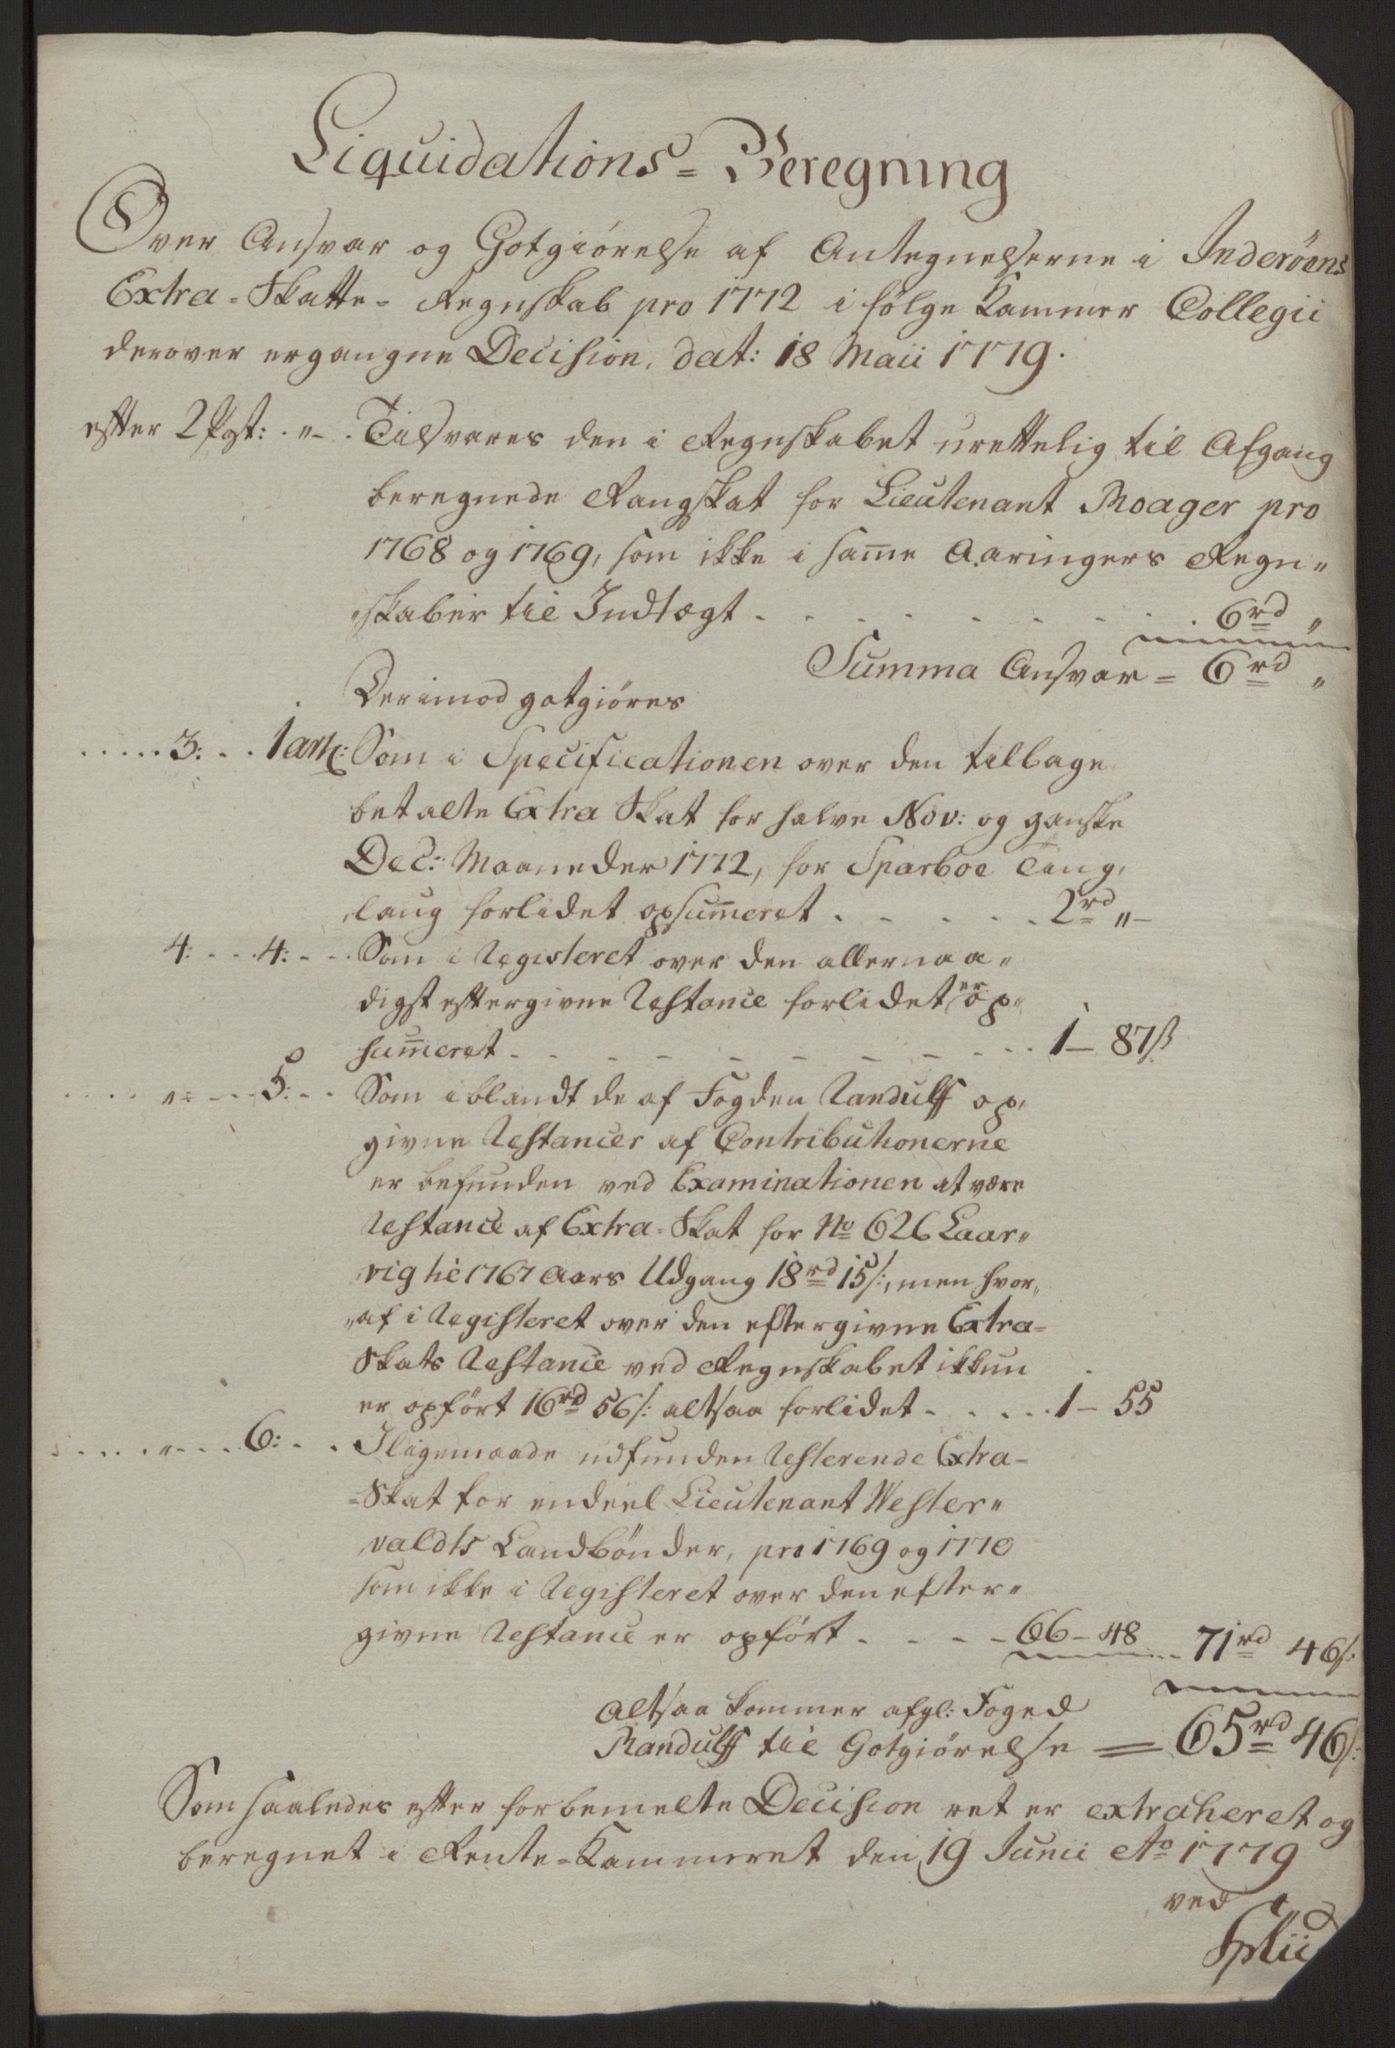 Liquidations-Beregning
Over Ansvar og Gotgiörelse af Antegnelserne i Inderöens
Extra-Skatte-Regnskab pro 1772 i fölge Kammer Collegii
derover ergangne Decision, dat: 18 Maii 1779.
efter 2 Post: . "- . Tilsvares den i Regnskabet urettelig til Afgang
beregnede Rangskat for Lieutenant Moager pro
1768 og 1769, som ikke i samme Aaringers Regn„
„skaber til Indtægt - - - - - - - . 6rd "
Summa Ansvar = 6rd "
Derimod gotgiöres
. . . . . 3: . . 1 ant: Som i Specificationen over den tilbage
betalte Extra Skat for halve Nov: og ganske
Dec: Maaneder 1772, for Sparboe Ting,
,laug forlidet opsummeret . - - - - . 2rd "-
4: - - . 4: - - . Som i Registeret over den allernaa„
digst eftergivne Restance forlidet er op„
summeret - - - - - - - - - 1 - 87ß
. . . . "- - - - 5: - - Som iblandt de af Fogden Randulff op„
givne Restancer af Contributionerne
er befunden ved Examinationen at være
Restance af Extra-Skat for No 626 Laar„
vig til 1767 Aars Udgang 18rd 15/:, men hvor„
„af i Registeret over den eftergivne Extra-
Skats Restance ved Regnskabet ikkun
er opfört 16rd 56/: altsaa forlidet - - . . . 1 - 55
. . . . "- - - . 6: - . Iligemaade udfunden Resterende Extra-
-Skat for endeel Lieutenant Wester„
valdts Landbönder, pro 1769 og 1770
som ikke i Registeret over den efter„
givne Restance er opfört - - - - 66 - 48 71rd 46/:
Altsaa kommer afgl: Foged
Randulff til Gotgiörelse = 65rd 46/:
Som saaledes efter forbemelte Decision ret er extraheret og
beregnet i Rente-Kammeret den 19 Junii Ao 1779
ved